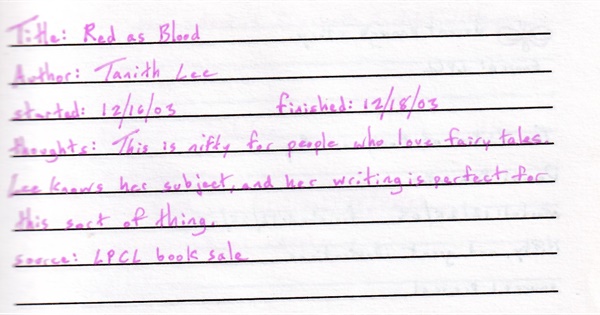 Title: Red as Blood
Author: Tanith Lee
started: 12/16/03 finished: 12/18/03
thoughts: This is nifty for people who love fairy tales.
Lee knows her subject, and her writing is perfect for
this sort of thing.
source: LPCL book sale